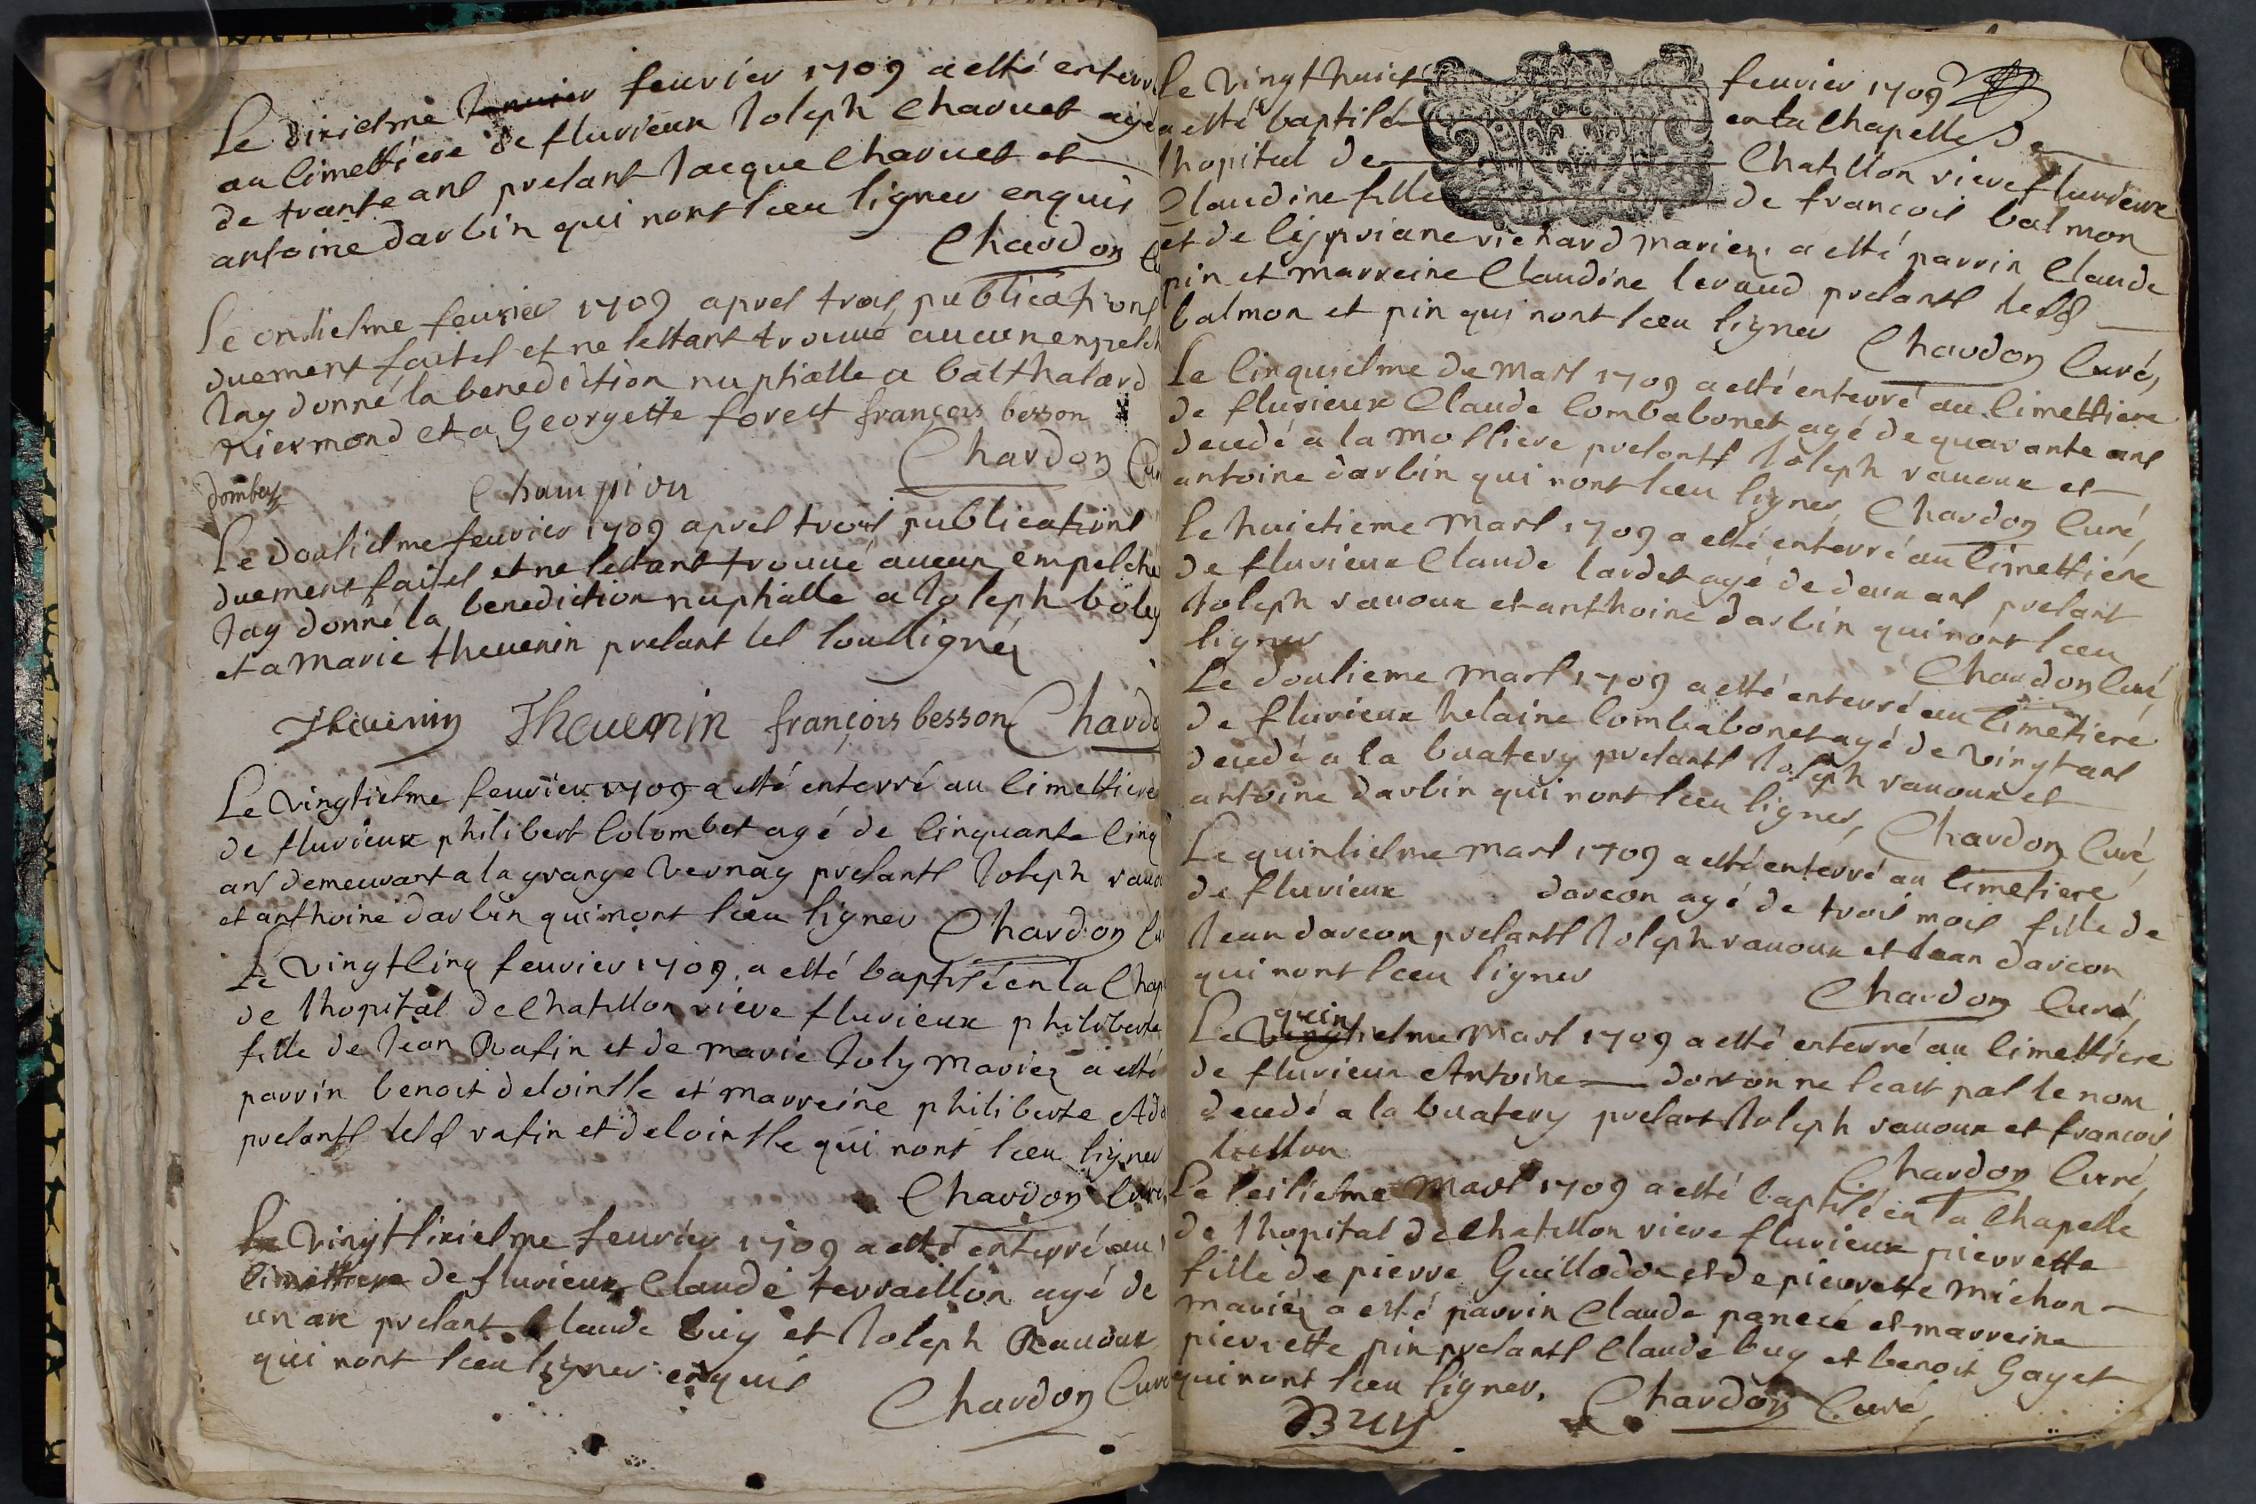 Le dixiesme Janvier feuvier 1709 a esté enterré
au Cimettiere de fluvieux Joseph Charvet agé
de trante ans presant Jacque Charvet et
antoine darbin qui nont sceu signer enquis
Chardon
Le onsiesme feuvier 1709 apres trois publications
duement faites et ne sestant trouvé aucun enpesch
Jay donné la benediction nuptialle a balthasard
riermond et a Georgette forest françois besson
Chardon Cur
dombey Champion
Le dousiesme feuvier 1709 apres trois publications
duement faites et ne sestant trouué aucun empesche
Jay donné la benediction nuptialle a Joseph
et a marie theuenin presant les soussignéz
Theuenin Theuenin françois besson Chardo
Le vingtiesme feuvier 1709 a esté enterré au Cimettiere
de fluvieux philibert Colombet agé de Cinquante Cinq
ans demeurant a la grange vernay presants Joseph rauou
et anthoine darbin qui nont sceu signer Chardon Cu
Le vingt Cinq feuvier 1709 a esté baptisé en la Chap
de lhopital de Chatillon riere fluvieux philiberte
fille de Jean Rafin et de marie Joly mariez a esté
parrin benoit deloinsle et marreine philiberte
presants lesd rafin et deloinsle qui nont sceu signer
Chardon Curé
Le vingt sixiesme feuvier 1709 a esté enterré au
Cimettiere de fluvieux Claude terraillon agé de
un an presant Claude buy et Joseph Rauoux
qui nont sceu signer enquis
Chardon Curé
Le vingt huict feuvier 1709
a esté baptisé en la Chapelle de
lhopital de Chatillon riere fluvieux
Claudine fille de francois balmon
et de Cipriane richard mariez, a esté parrin Claude
pin et marreine Claudine leraud presants lesd
balmon et pin qui nont sceu signer Chardon Curé
Le Cinquiesme de mars 1709 a esté enterré au Cimettiere
de fluvieux Claude Combabonet agé de quarante ans
decedé a la molliere presants Joseph rauoux et
antoine darbin qui nont sceu signer, Chardon Curé
Le huictieme mars 1709 a esté enterré au Cimettiere
de fluvieux Claude lardet agé de deux ans presant
Joseph rauoux et anthoine darbin qui nont sceu
signer
Chardon Curé
Le dousieme mars 1709 a esté enterré au Cimetiere
de fluvieux helaine Combabonet agé de vingt ans
decedé a la buatery presants Joseph rauoux et
antoine darbin qui nont sceu signer, Chardon Curé
Le quinsiesme mars 1709 a esté enterré au Cimetiere
de fluvieux darcon agé de trois mois fille de
Jean darcon presants Joseph rauoux et Jean darcon
qui nont sceu signer
Chardon Curé
Le vingtiesme quin mars 1709 a esté enterré au Cimettiere
de fluvieux Antoine dont on ne scait pas le nom
decedé a la buatery presant Joseph rauoux et francois
Chardon Curé
Le seisiesme mars 1709 a esté baptisé en la Chapelle
de lhopital de Chatillon riere fluvieux pierrette
fille de pierre Guillodon et de pierrette michon
mariéz a esté parrin Claude panecé et marreine
pierrette pin presants Claude buy et benoit Gayet
qui nont sceu signer. Chardon Curé
BUY